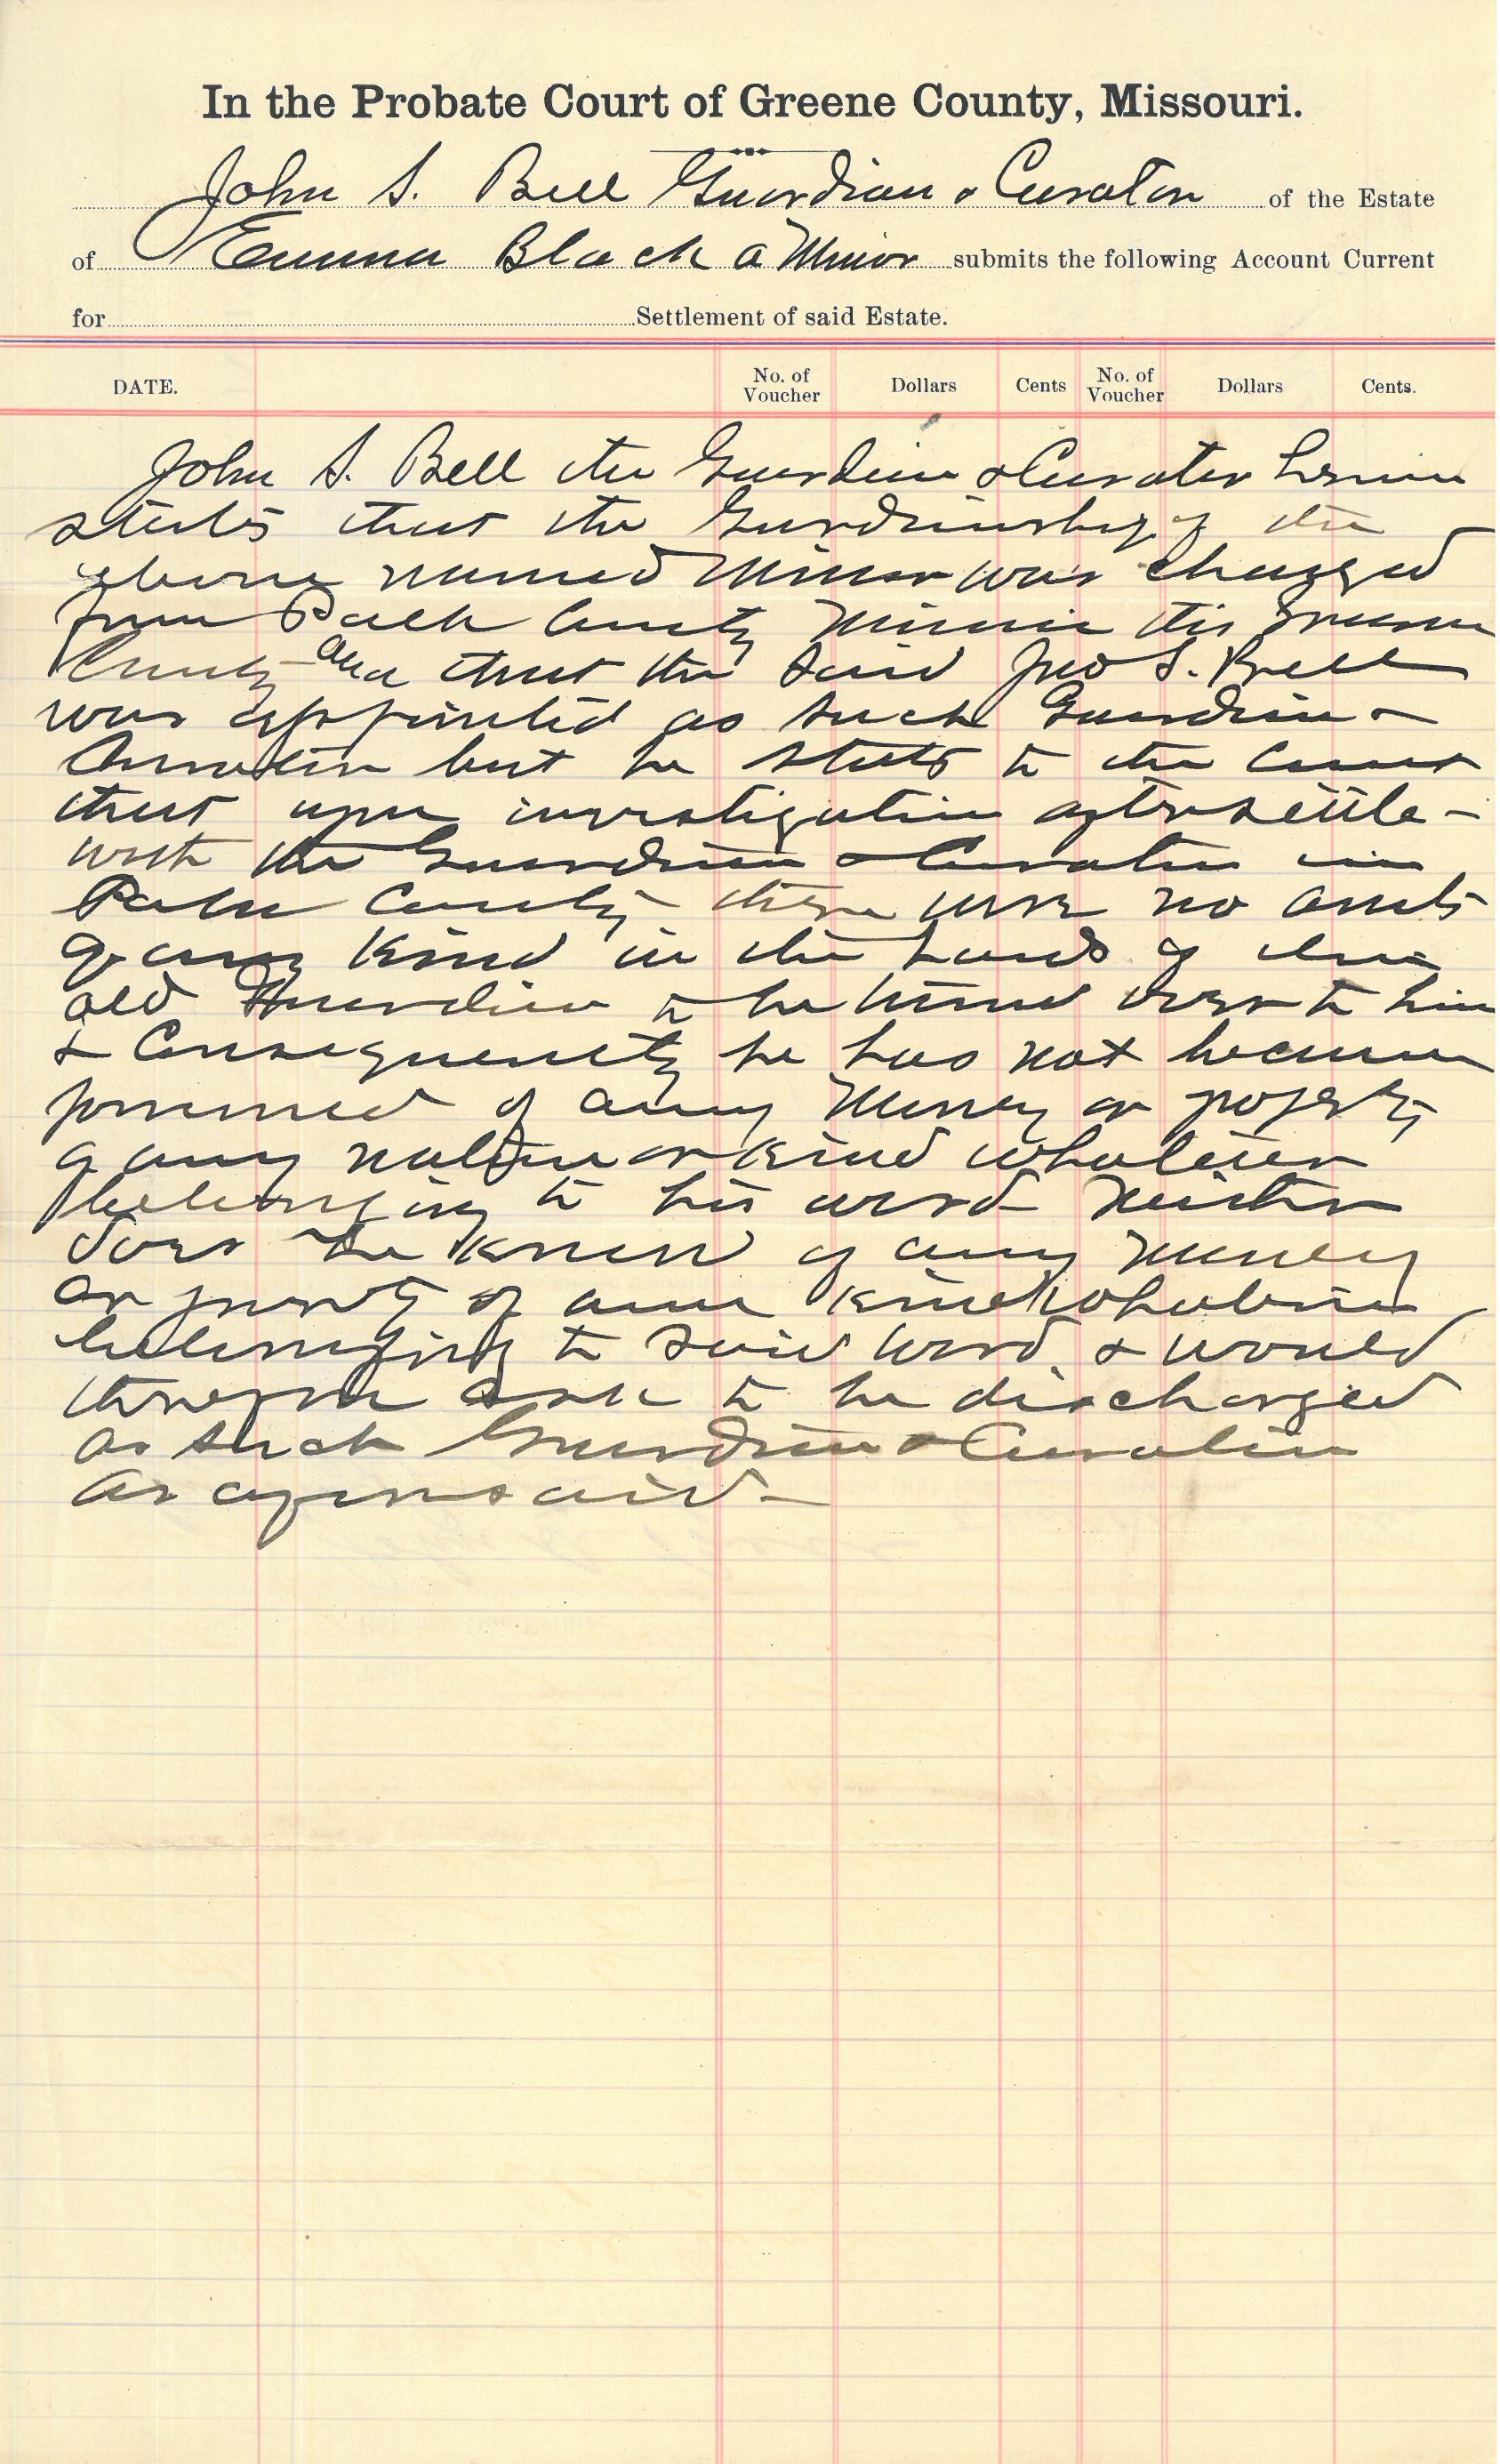 In the Probate Court of Greene County, Missouri.
John S. Bell Guardian & Curator of the Estate
of Emma Black a Minor submits the following Account Current
for Settlement of said Estate.
DATE. No. of Voucher Dollars Cents No. of Voucher Dollars Cents.
John S. Bell the Guardian & Curator herein
states that the Guardianship of the
above named Minor was changed
from Polk County Missouri this Greene
County and that the said Jno S. Bell
was appointed as such Guardian &
Curator but he states to the Court
that upon investigation after settle-
with the Guardian & Curator in
Polk County there were no assets
of any kind in the hands of the
old Guardian to be turned over to him
& Consequently he has not become
possessed of any Money or property
of any nature or kind whatever
belonging to his ward Neither
does he know of any money
or property of any kind whatever
belonging to said Ward & would
therefore ask to be discharged
as such Guardian & Curator
as aforesaid-